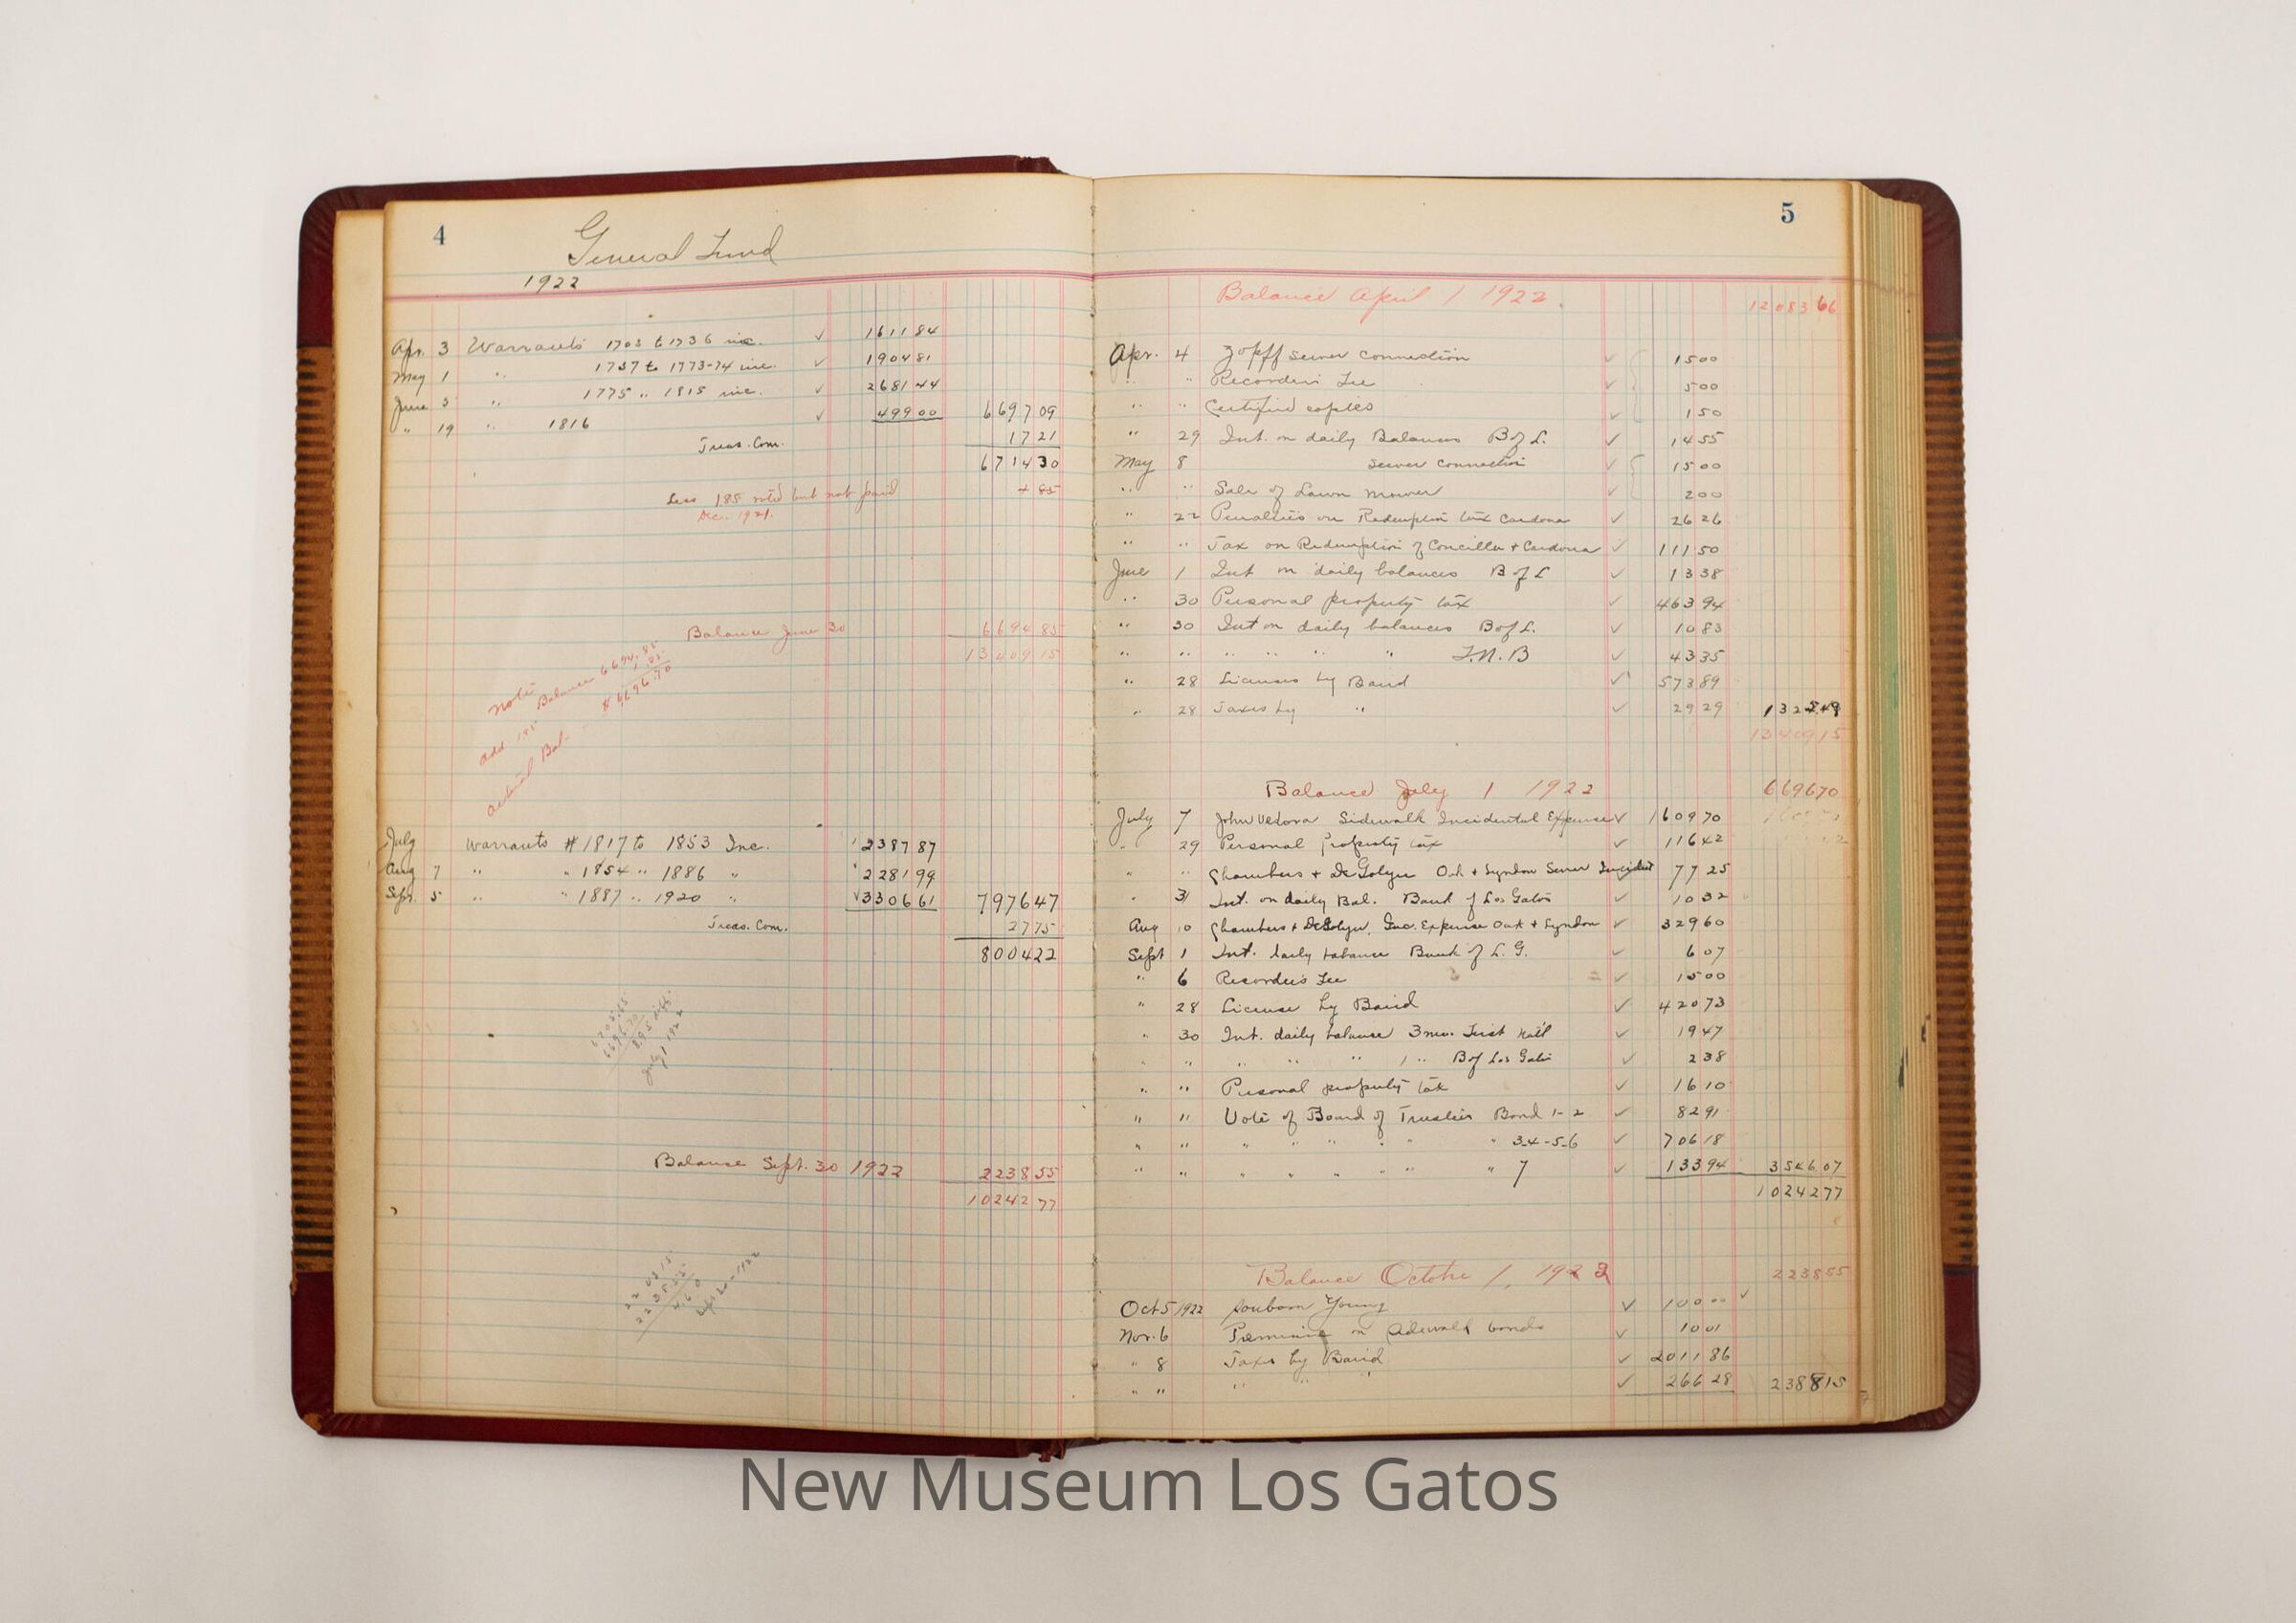 4
General Fund
1922
Apr. 3 Warrants 1703 to 1736 inc. ✓ 1611 84
May 1 " 1737 to 1773-74 inc. ✓ 1904 81
June 5 " 1775 " 1815 inc. ✓ 2681 44
" 19 " 1816 ✓ 499 00 6697 09
Treas. Com. 17 21
6714 30
Less 185 noted but not paid
Dec. 1921.
85
Balance June 30 6694 85
13409 15
Note
Balance 6694.85
Add 185 1.85
Actual Bal. $6696.70
July Warrants # 1817 to 1853 Inc. 2387 87
Aug 7 " " 1854 " 1886 " 2281 99
Sept. 5 " " 1887 " 1920 " ✓ 3306 61 7976 47
Treas. Com. 27 75
8004 22
6705.65
6696.70
8.95 diff.
July 1 1922
Balance Sept. 30 1922 2238 55
10242 77
5
Balance April 1 1922. 12083 66
Apr. 4 Zopff Sewer Connection ✓ 15 00
" " Recorders Fee ✓ 5 00
" " Certified copies ✓ 1 50
" 29 Int. on daily Balances B of L. ✓ 14 55
May 8 Sewer Connection ✓ 15 00
" " Sale of Lawn Mower ✓ 2 00
" 22 Penalties on Redemption tax Cardona ✓ 26 26
" " Tax on Redemption of Concilla + Cardona ✓ 111 50
June 1 Int on daily balances B of L ✓ 13 38
" 30 Personal property tax ✓ 463 94
" 30 Int on daily balances B of L. ✓ 10 83
" " " " " " F.N.B ✓ 43 35
" 28 Licenses by Baird ✓ 573 89
" 28 Taxes by " ✓ 29 29 1325 49
13409 15
Balance July 1 1922 6696 70
July 7 John Vedova Sidewalk Incidental Expense ✓ 1609 70
" 29 Personal property tax ✓ 116 42
" " Chambers + DeGolyer Oak + Lyndon Sewer Incident 77 25
" 31 Int. on daily Bal. Bank of Los Gatos ✓ 10 32
Aug 10 Chambers + DeGolyer, Inc. Expense Oak + Lyndon ✓ 329 60
Sept 1 Int. daily balance Bank of L. G. ✓ 6 07
" 6 Recorders Fee ✓ 15 00
" 28 License by Baird ✓ 420 73
" 30 Int. daily balance 3 mo. First Nat'l ✓ 19 47
" " " " " 1 " B of Los Gatos ✓ 2 38
" " Personal property tax ✓ 16 10
" " Vote of Board of Trustees Bond 1-2 ✓ 82 91
" " " " " " " " 3-4-5-6 ✓ 706 18
" " " " " " " " 7 ✓ 133 94 3546 07
10242 77
Balance October 1, 1922 2238 55
Oct 5 1922 Young ✓ 100 00 ✓
Nov. 6 Premium on bonds ✓ 10 01
" 8 Taxes by Baird ✓ 2011 86
" " " " " ✓ 266 28 2388 15
New Museum Los Gatos